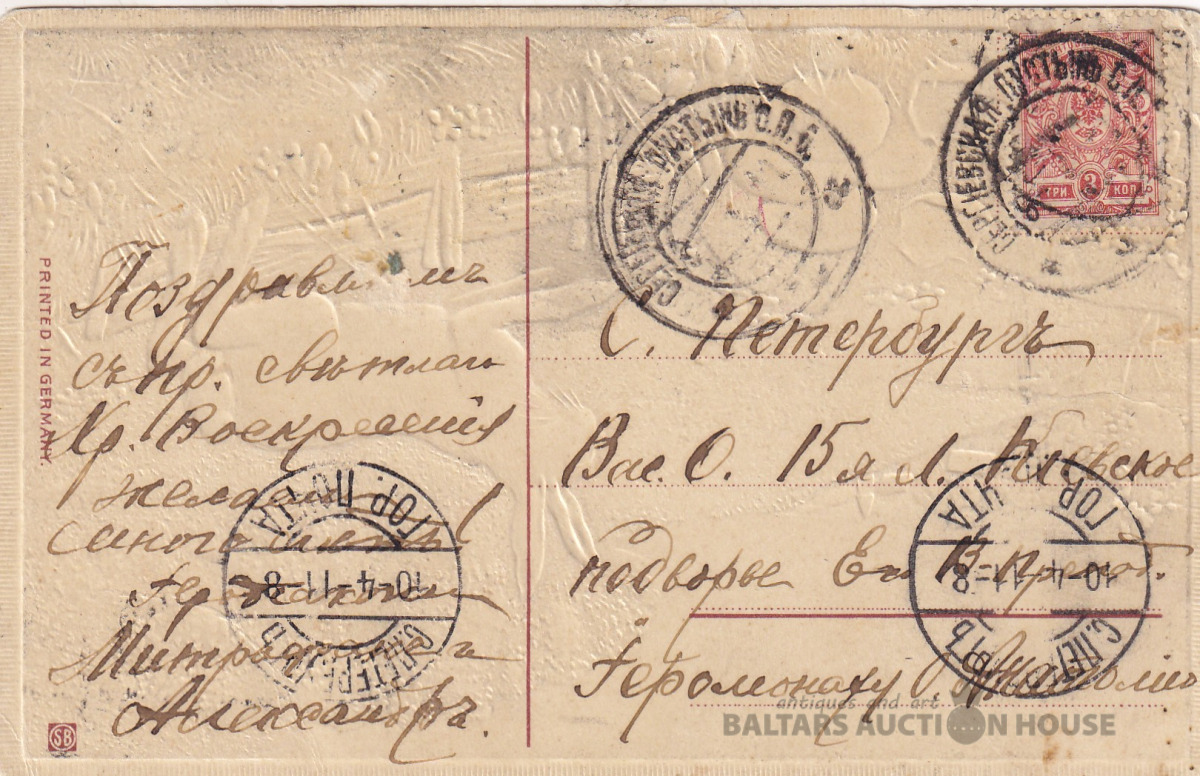 Поздравляемъ
съ пр. свѣтлаго
Хр. Воскресенія
желаем
много
Митрофан и
Александръ.
PRINTED IN GERMANY.
SB
СЕРГІЕВСКАЯ ПУСТЫНЬ С.П.Б.
СЕРГІЕВСКАЯ ПУСТЫНЬ С.П.
ТРИ 3 КОП
С. Петербургъ
Вас. О. 15я Л. Кіевское
подворье Ев. В-препод.
Іеромонаху Анатолію
С.ПЕТЕРБУРГЪ
10-4-11-8
ГОР. ПОЧТА
С.ПЕТЕРБУРГЪ
10-4-11-8
ГОР. ПОЧТА
antiques and art
BALTARS AUCTION HOUSE